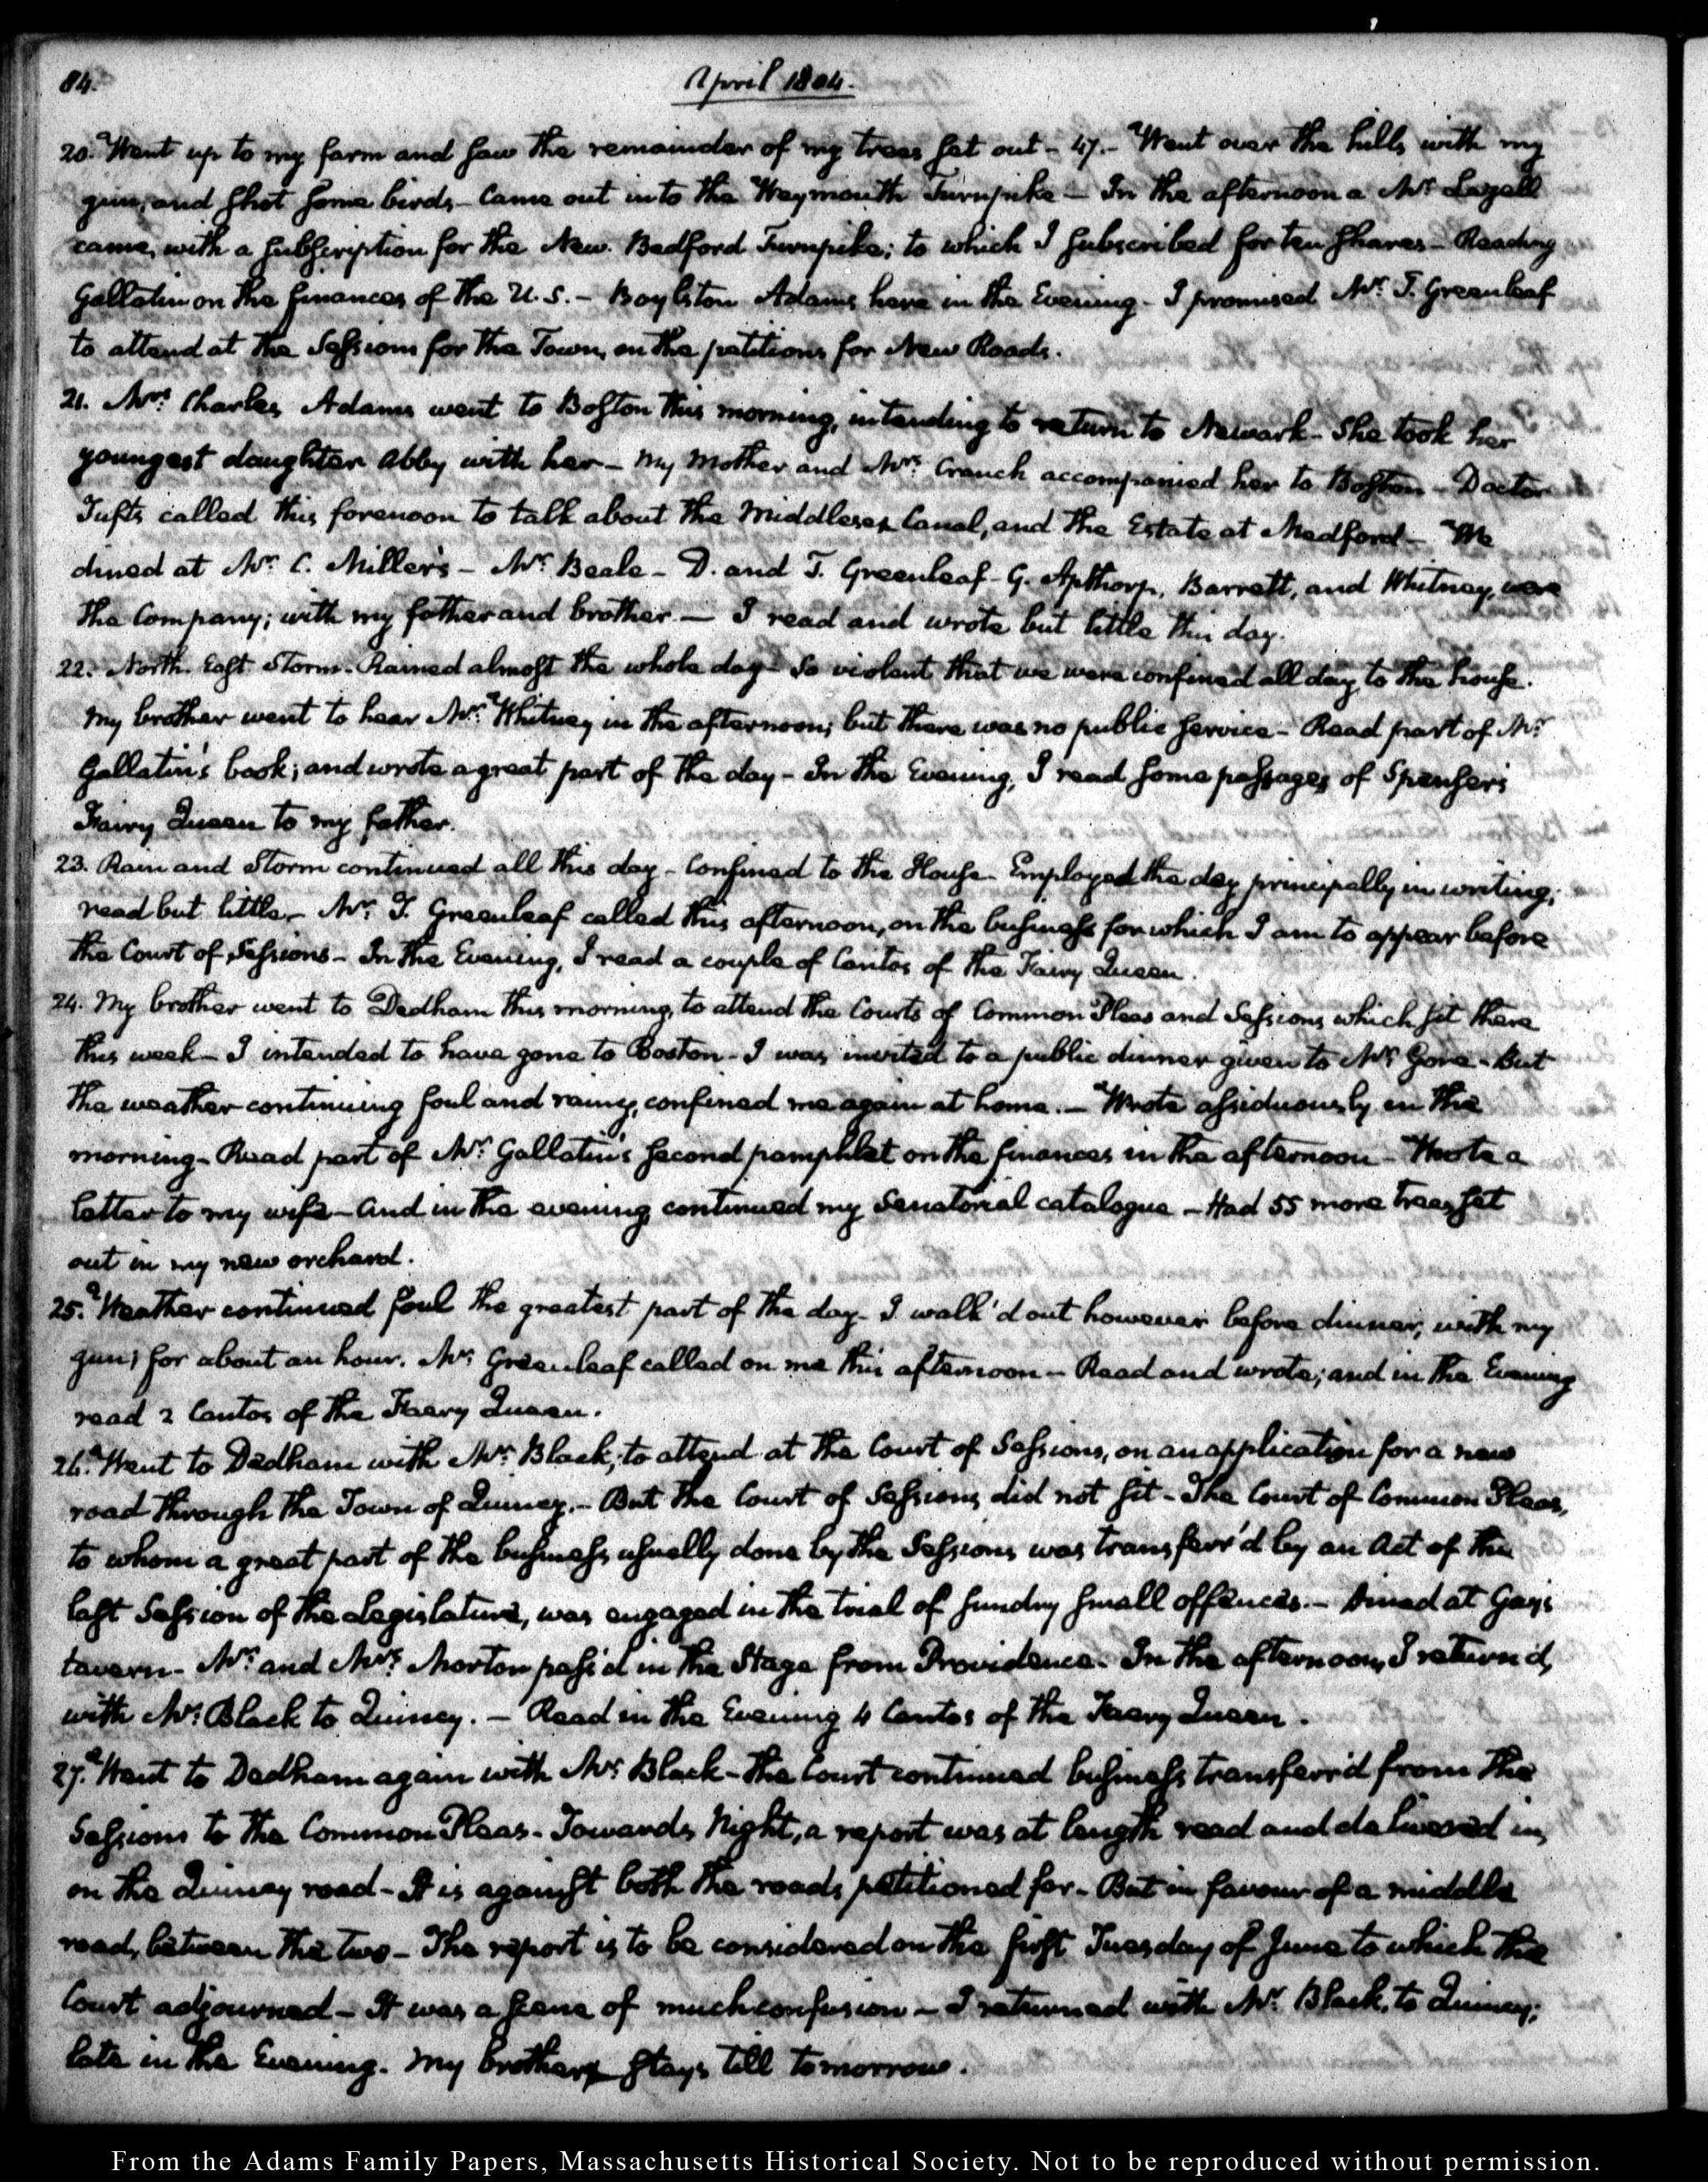 84.
April 1804.
20. Went up to my farm and saw the remainder of my trees set out - 47. - Went over the hills with my
gun, and shot some birds - Came out into the Weymouth Turnpike - In the afternoon a Mr. Lazell
came, with a subscription for the New Bedford Turnpike; to which I subscribed for ten shares - Reading
Gallatin on the finances of the U.S. - Boylston Adams here in the Evening - I promised Mr. T. Greenleaf
to attend at the Sessions for the Town, on the petitions for New Roads.
21. Mrs. Charles Adams went to Boston this morning, intending to return to Newark - She took her
youngest daughter Abby with her - My Mother and Mrs. Cranch accompanied her to Boston - Doctor
Tufts called this forenoon to talk about the Middlesex Canal, and the Estate at Medford - We
dined at Mr. C. Miller's - Mr. Beale - D. and T. Greenleaf - G. Apthorp, Barrett, and Whitney, were
the Company; with my father and brother. - I read and wrote but little this day.
22. North East Storm - Rained almost the whole day - So violent that we were confined all day to the house.
My brother went to hear Mr. Whitney in the afternoon; but there was no public service - Read part of Mr.
Gallatin's book; and wrote a great part of the day - In the Evening, I read some passages of Spenser's
Fairy Queen to my father.
23. Rain and Storm continued all this day - Confined to the House - Employed the day principally in writing;
read but little. - Mr. T. Greenleaf called this afternoon, on the business for which I am to appear before
the Court of Sessions - In the Evening, I read a couple of Cantos of the Fairy Queen.
24. My brother went to Dedham this morning, to attend the Courts of Common Pleas and Sessions which sit there
this week - I intended to have gone to Boston - I was invited to a public dinner given to Mr. Gore - But
the weather continuing foul and rainy, confined me again at home. - Wrote assiduously in the
morning - Read part of Mr. Gallatin's second pamphlet on the finances in the afternoon - Wrote a
letter to my wife - And in the evening continued my Senatorial catalogue - Had 55 more trees set
out in my new orchard.
25. Weather continued foul the greatest part of the day - I walk'd out however before dinner, with my
gun, for about an hour. Mr. Greenleaf called on me this afternoon - Read and wrote; and in the Evening
read 2 Cantos of the Faery Queen.
26. Went to Dedham with Mr. Black, to attend at the Court of Sessions, on an application for a new
road through the Town of Quincy. - But the Court of Sessions did not sit - The Court of Common Pleas,
to whom a great part of the business usually done by the Sessions was transferr'd by an Act of the
last Session of the Legislature, was engaged in the trial of sundry small offences. - Dined at Gay's
tavern - Mr. and Mrs. Morton pass'd in the Stage from Providence - In the afternoon, I return'd,
with Mr. Black to Quincy. - Read in the Evening 4 Cantos of the Faery Queen.
27. Went to Dedham again with Mr. Black - The Court continued business transferr'd from the
Sessions to the Common Pleas - Towards Night, a report was at length read and delivered in,
on the Quincy road - It is against both the roads petitioned for - But in favour of a middle
road, between the two - The report is to be considered on the first Tuesday of June to which the
Court adjourned - It was a scene of much confusion - I returned with Mr. Black, to Quincy;
late in the Evening. My brother stays till tomorrow.
From the Adams Family Papers, Massachusetts Historical Society. Not to be reproduced without permission.